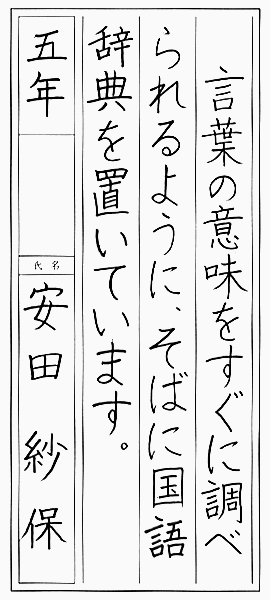 言葉の意味をすぐに調べ
られるように、そばに国語
辞典を置いています。
五年
氏名
安田紗保